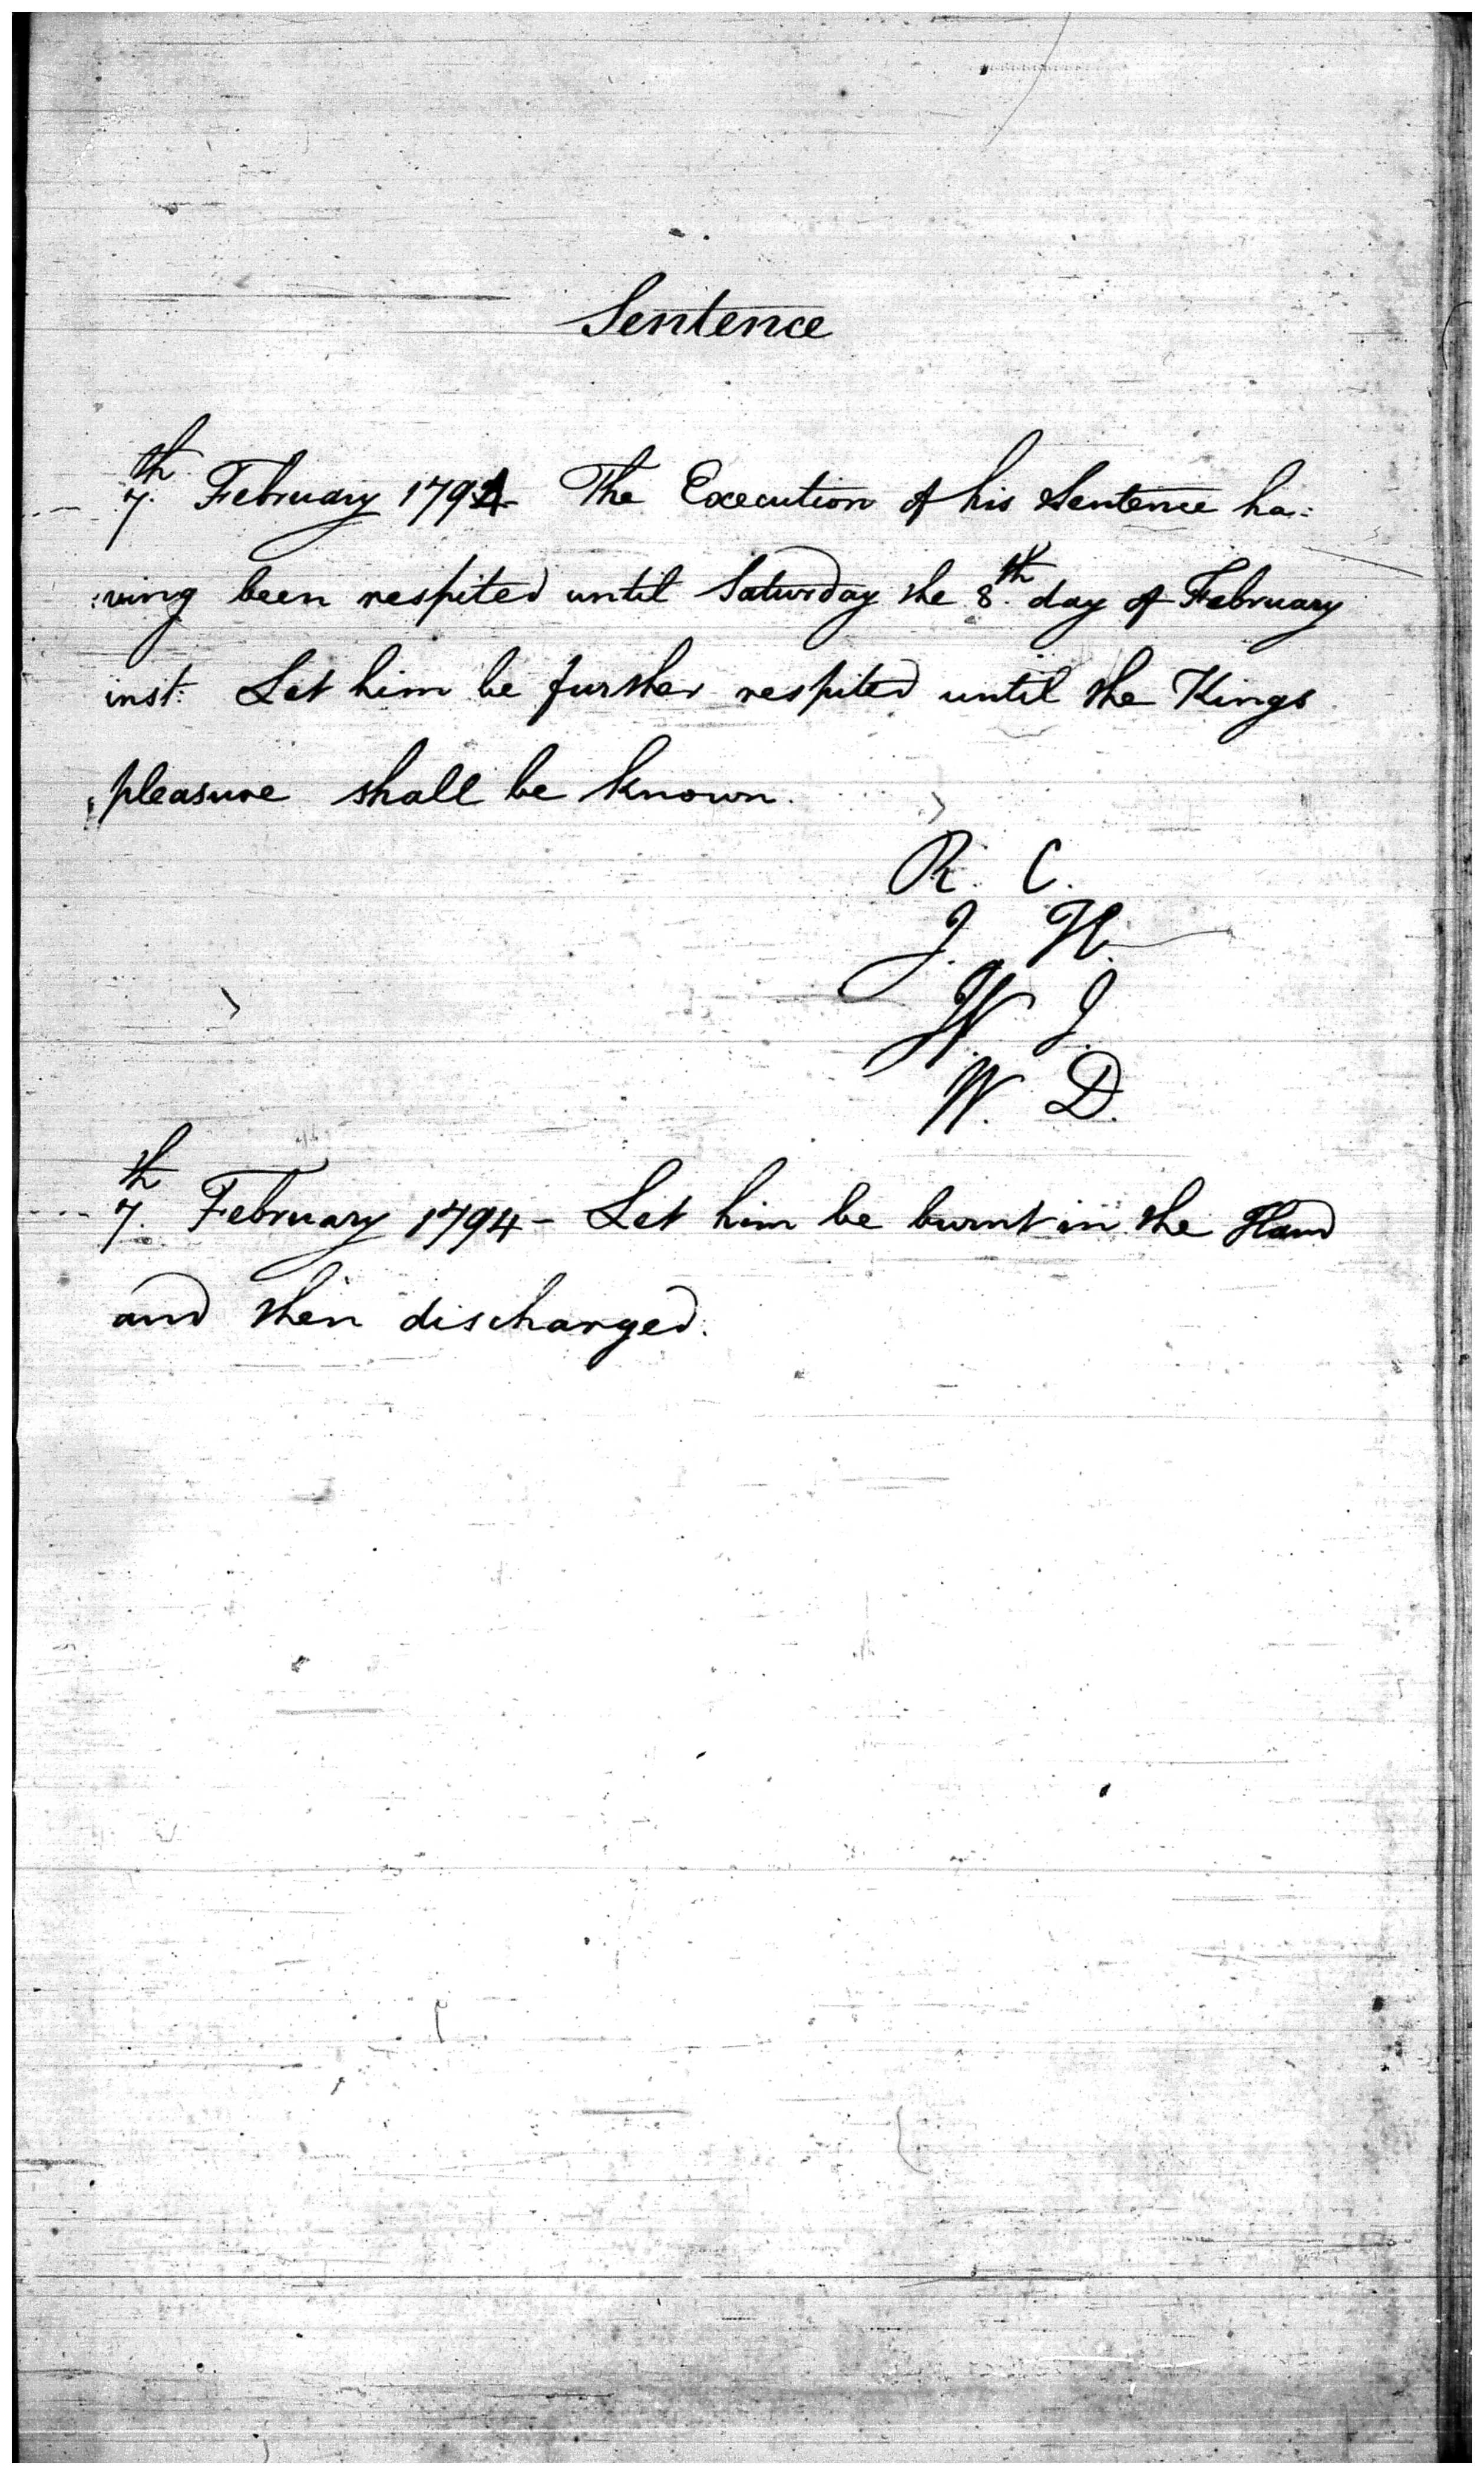 Sentence
7th. February 1794 - The Execution of his Sentence ha:
:ving been respited until Saturday the 8th. day of February
inst: Let him be further respited until the Kings
pleasure shall be known.
R. C.
J. H.
W. J.
W. D.
7th. February 1794 - Let him be burnt in the Hand
and then discharged.